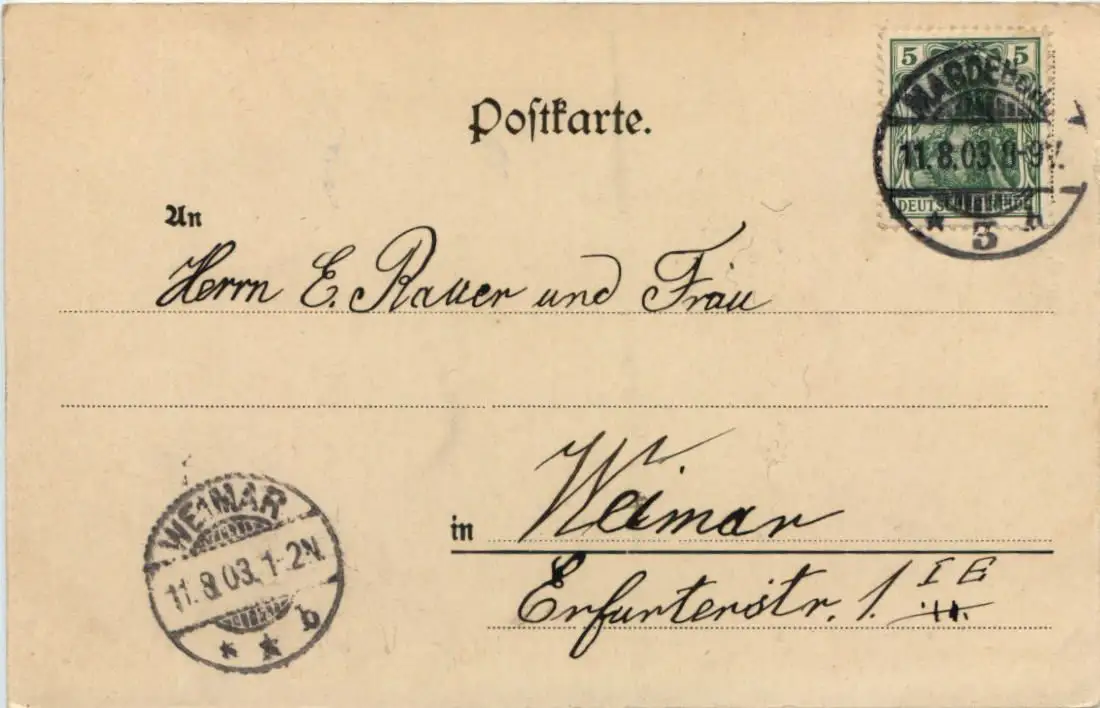 5 5
MAGDEBURG
11.8.03. 8-9V.
* 3 h
DEUTSCHES REICH
Postkarte.
An
Herrn E. Rauer und Frau
in Weimar
Erfurterstr. 1. I E
WEIMAR
11.8.03. 1-2N.
* * b